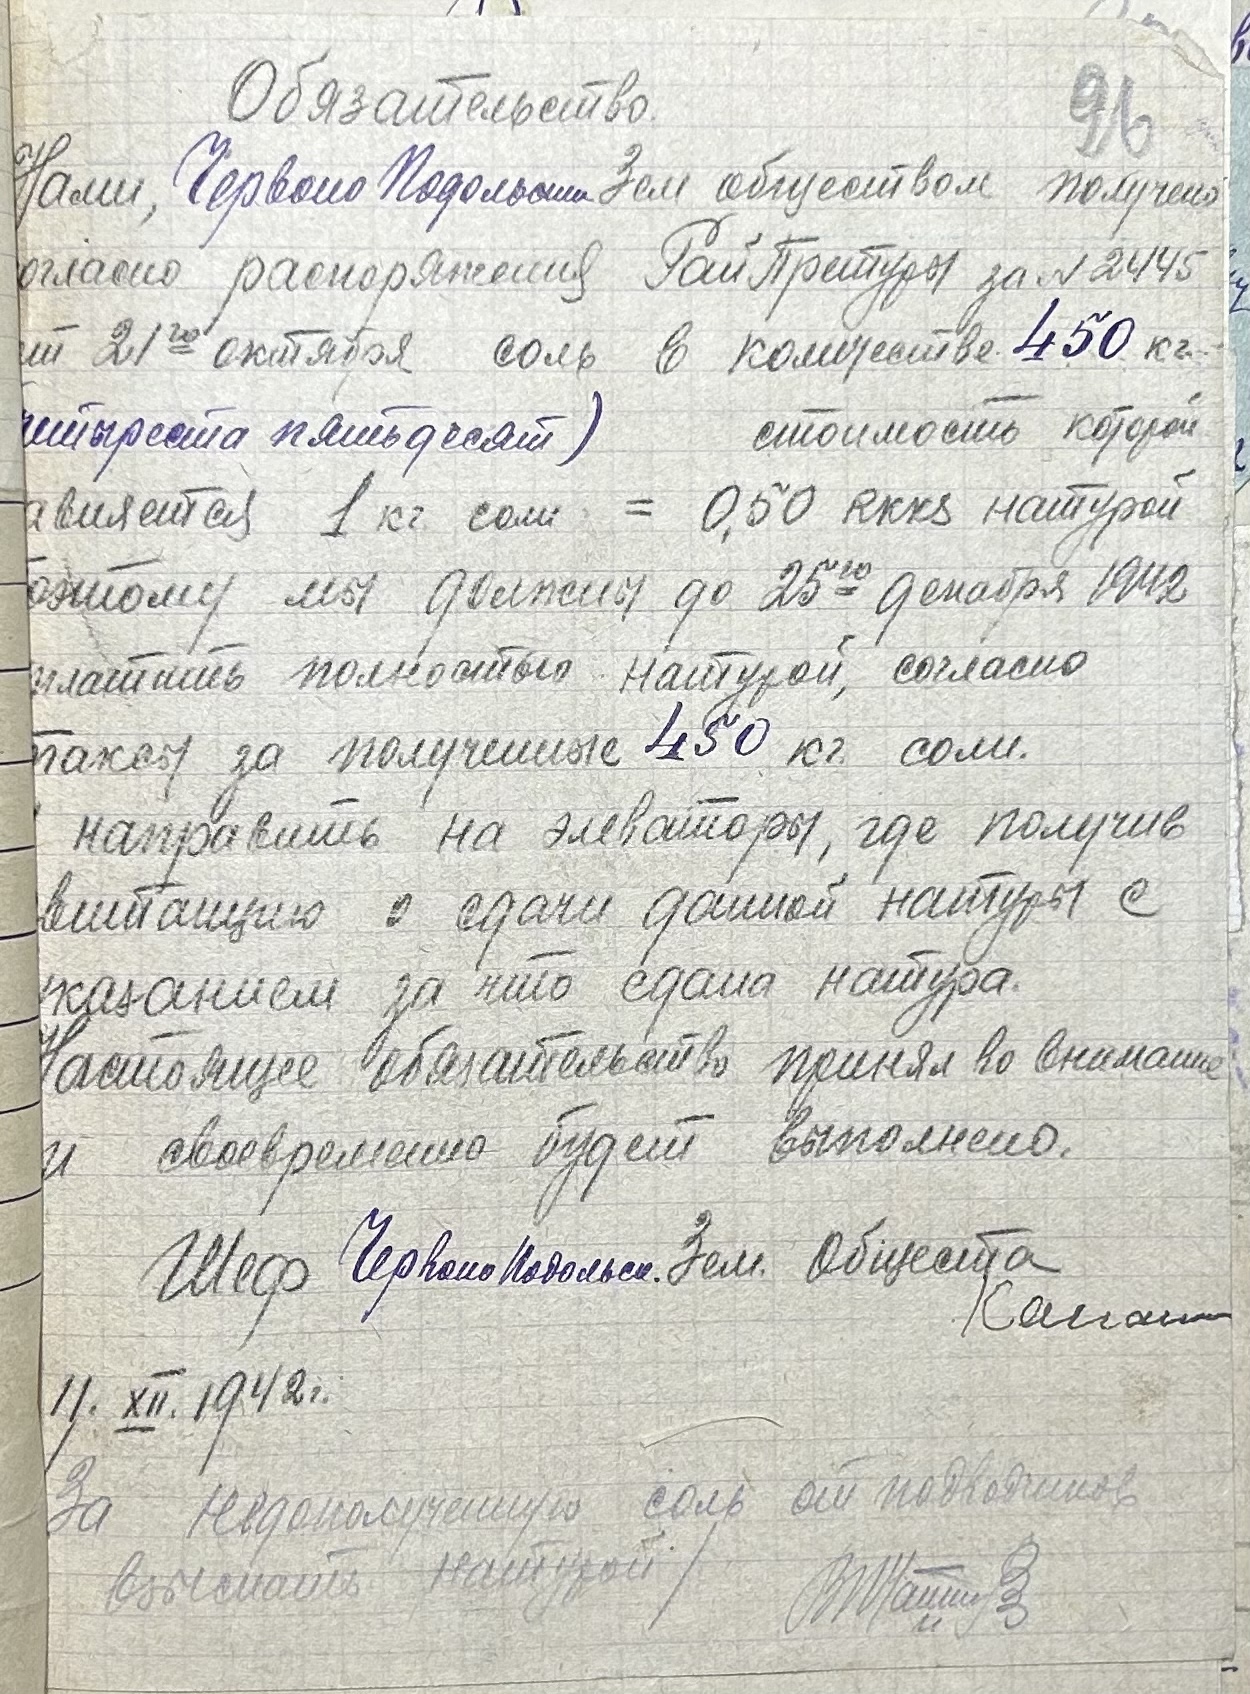 Обязательство.
96
Нами, Червоно Подольским Зем обществом получено
огласно распоряжения РайПретуры за № 2445
от 21го октября соль в количестве 450 кг.
четыреста пятьдесят) стоимость которой
авляется 1 кг соли = 0,50 RKKS натурой
поэтому мы должны до 25го декабря 1942
платить полностью натурой, согласно
таксы за полученные 450 кг. соли.
направить на элеваторы, где получив
витанцию о сдачи данной натуры с
казанием за что сдана натура.
Настоящее обязательство принял во внимание
и своевременно будет выполнено.
Шеф Червоно Подольск. Зем. Общества
11. XII. 1942 г.
За недополученную соль от подводчиков
взыскать натурой